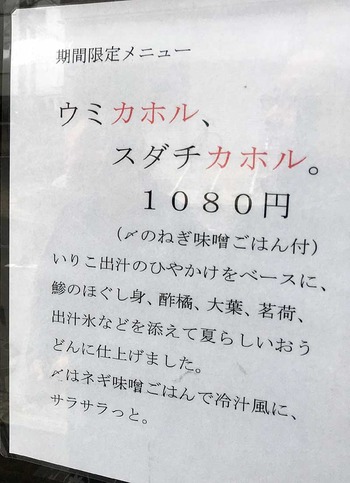 期間限定メニュー
ウミカホル、
スダチカホル。
１０８０円
（〆のねぎ味噌ごはん付）
いりこ出汁のひやかけをベースに、
鯵のほぐし身、酢橘、大葉、茗荷、
出汁氷などを添えて夏らしいおう
どんに仕上げました。
〆はネギ味噌ごはんで冷汁風に、
サラサラっと。